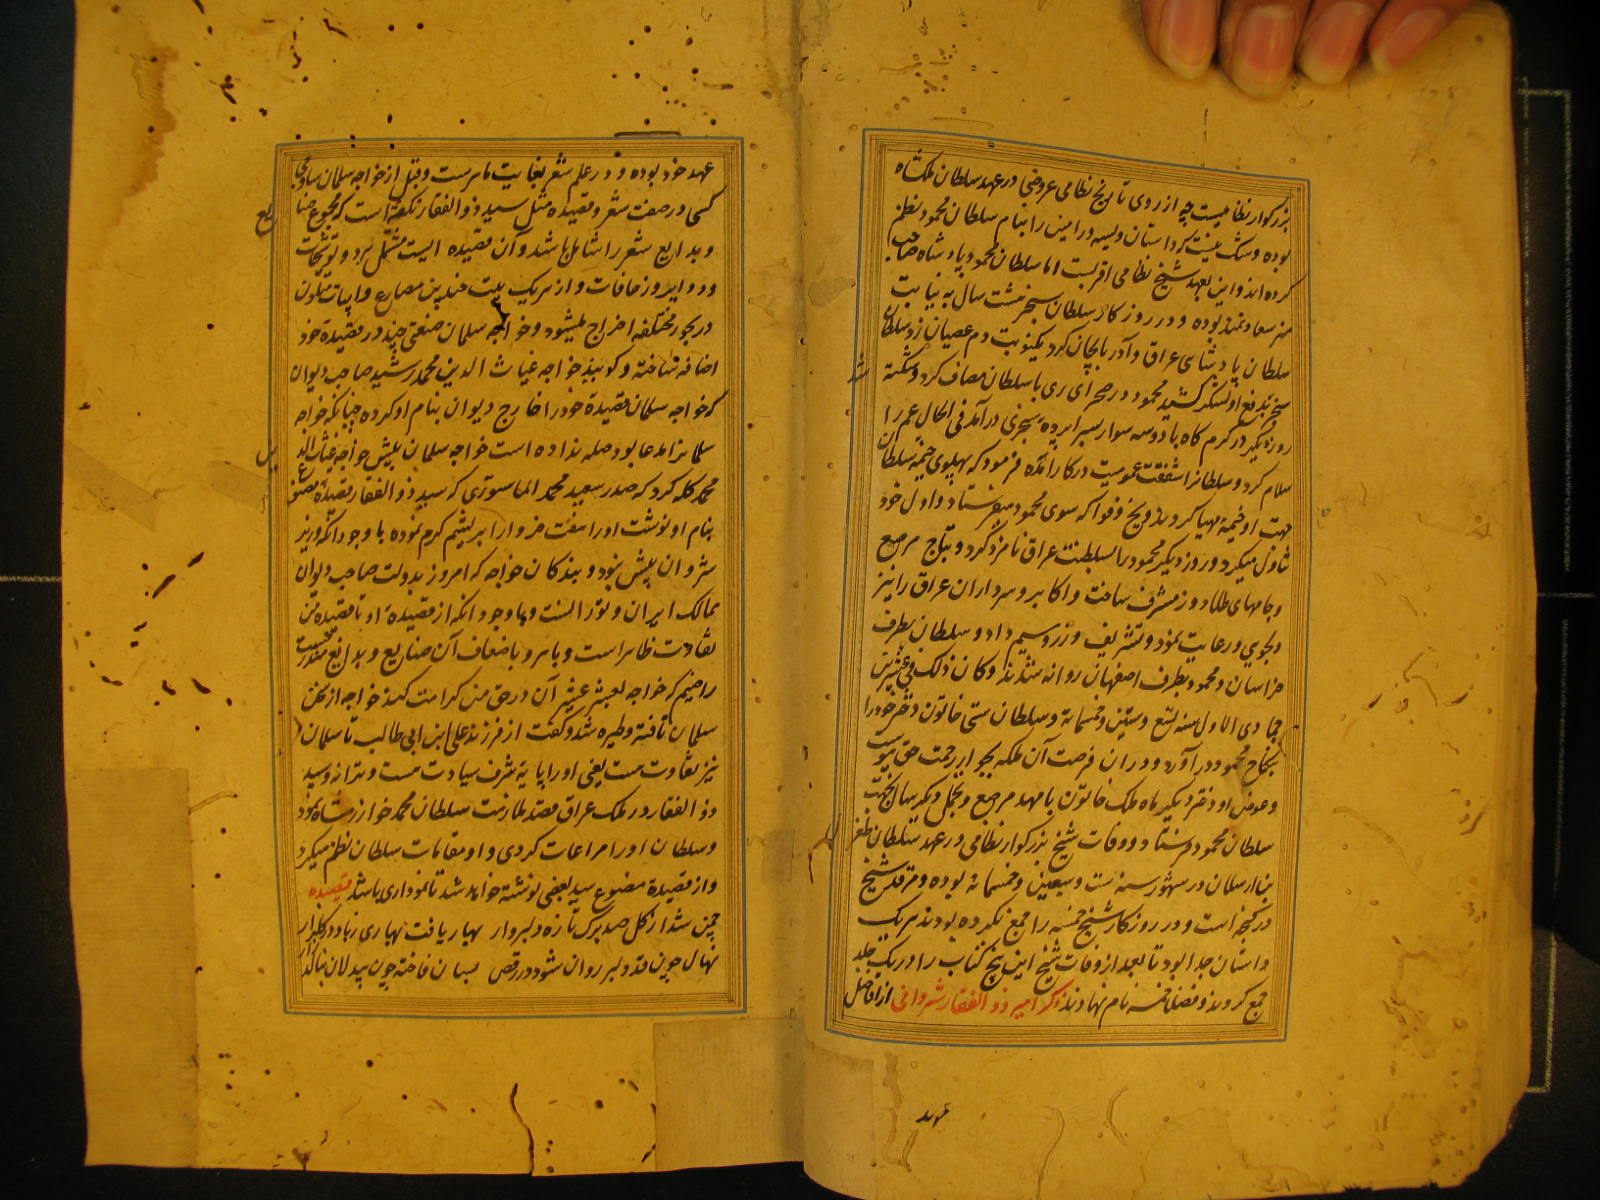 بزرگوار نظامیست چه از روی تاریخ نظامی عروضی در عهد سلطان ملکشاه
بوده و شک نیست که داستان ویسه و رامین را بنام سلطان محمود بنظم
کرده اند و این بعهد شیخ نظامی اقربست اما سلطان محمود پادشاه صاحب
هنر سعادتمند بوده و در روزگار سلطان سنجر هشت سال به نیابت
سلطان پادشاهی عراق و آذربایجان کرد یکنوبت دم عصیان زد سلطان
سنجر بدفع او لشکر کشید محمود در صحرای ری با سلطان مصاف کرد و شکسته شد
روز دیگر در گرم گاه با دو سه سوار بسراپرده سنجری درآمد فی الحال عم را
سلام کرد و سلطانرا شفقت عمومیت در کار آمده فرمود که پهلوی خیمه سلطان
جهت او خیمه مهیا کردند و یخ و فواکه سوی محمود میفرستاد و اول خود
تناول میکرد و روز دیگر محمود را بسلطنت عراق نامزد کرد و بتاج مرصع
و جامهای طلادوز مشرف ساخت و اکابر و سرداران عراق را نیز
دلجوی و رعایت نمود و تشریف و زر و سیم داد و سلطان بطرف
خراسان و محمود بطرف اصفهان روانه شدند و کان ذلک فی عشرین
جمادی الاول سنه تسع و ستین و خمسمائة و سلطان ستی خاتون دختر خود را
بنکاح محمود درآورد و در ان فرصت آن ملکه بجوار رحمت حق پیوست
و عوض او دختر دیگر ماه ملک خاتون با مهد مرصع و تجمل دیگر بهمان جهت
سلطان محمود فرستاد و وفات شیخ بزرگوار نظامی در عهد سلطان طغرل
بن ارسلان در شهور سنه ست و سبعین و خمسمائه بوده و مرقد شیخ
در گنجه است و در روزگار شیخ خمسه را جمع نکرده بودند هر یک
داستان جدا بود تا بعد از وفات شیخ این پنج کتاب را در یک جلد
جمع کردند و فضلا خمسه نام نهادند ذکر امیر ذو الفقار شروانی از افاضل
عهد
عهد خود بوده و در علم شعر بغایت ماهرست و قبل از خواجه سلمان ساوجی
کسی در صفت شعر و قصیده مثل سید ذو الفقار نگفته است که مجموع صنایع
و بدایع شعر را شامل باشد و آن قصیده ایست مشتمل بر دو توشیحات
و دوایر و زحافات و از هر یک بیت چندین مصارع و ابیات متلون
در بحور مختلفه اخراج میشود و خواجه سلمان صنعتی چند در قصیده خود
اضافه ساخته و گویند خواجه غیاث الدین محمد رشید صاحب دیوان
که خواجه سلمان قصیدهٔ خود را خارج دیوان بنام او کرده چنانکه خواجه
سلمانرا مدعا بود صله نداده است خواجه سلمان پیش خواجه غیاث الدین
محمد گله کرد که صدر سعید محمد الماستری که سید ذو الفقار قصیدهٔ مصنوع
بنام او نوشت او را هفت خروار ابریشم کرم نموده با وجود آنکه وزیر
شروان بیش نبود و بندگان خواجه که امروز بدولت صاحب دیوان
ممالک ایران و تورانست و با وجود آنکه از قصیدهٔ او تا قصیده من
تفاوت ظاهر است و باهر و باضعاف آن صنایع و بدایع مندرجست
راضیم که خواجه بعشر عشیر آن در حق من کرامت کند خواجه از سخن
سلمان تافته و طیره شد و گفت از فرزند علی ابن ابی طالب تا سلمان
نیز تفاوت هست یعنی او را پایهٔ شرف سیادت هست و ترا نه و سید
ذو الفقار در ملک عراق قصد ملازمت سلطان محمد خوارزمشاه نمود
و سلطان او را مراعات کردی و او مقامات سلطان نظم میکرد
و از قصیدهٔ مصنوع سید بعضی نوشته خواهد شد تا نموداری باشد قصیده
چمن شد از گل صد برگ تازه دلبروار بهار یافت بهاری زباد در گلزار
نهال چون قد دلبر روان شود در رقص بسان فاخته چون بیدلان بنالد زار